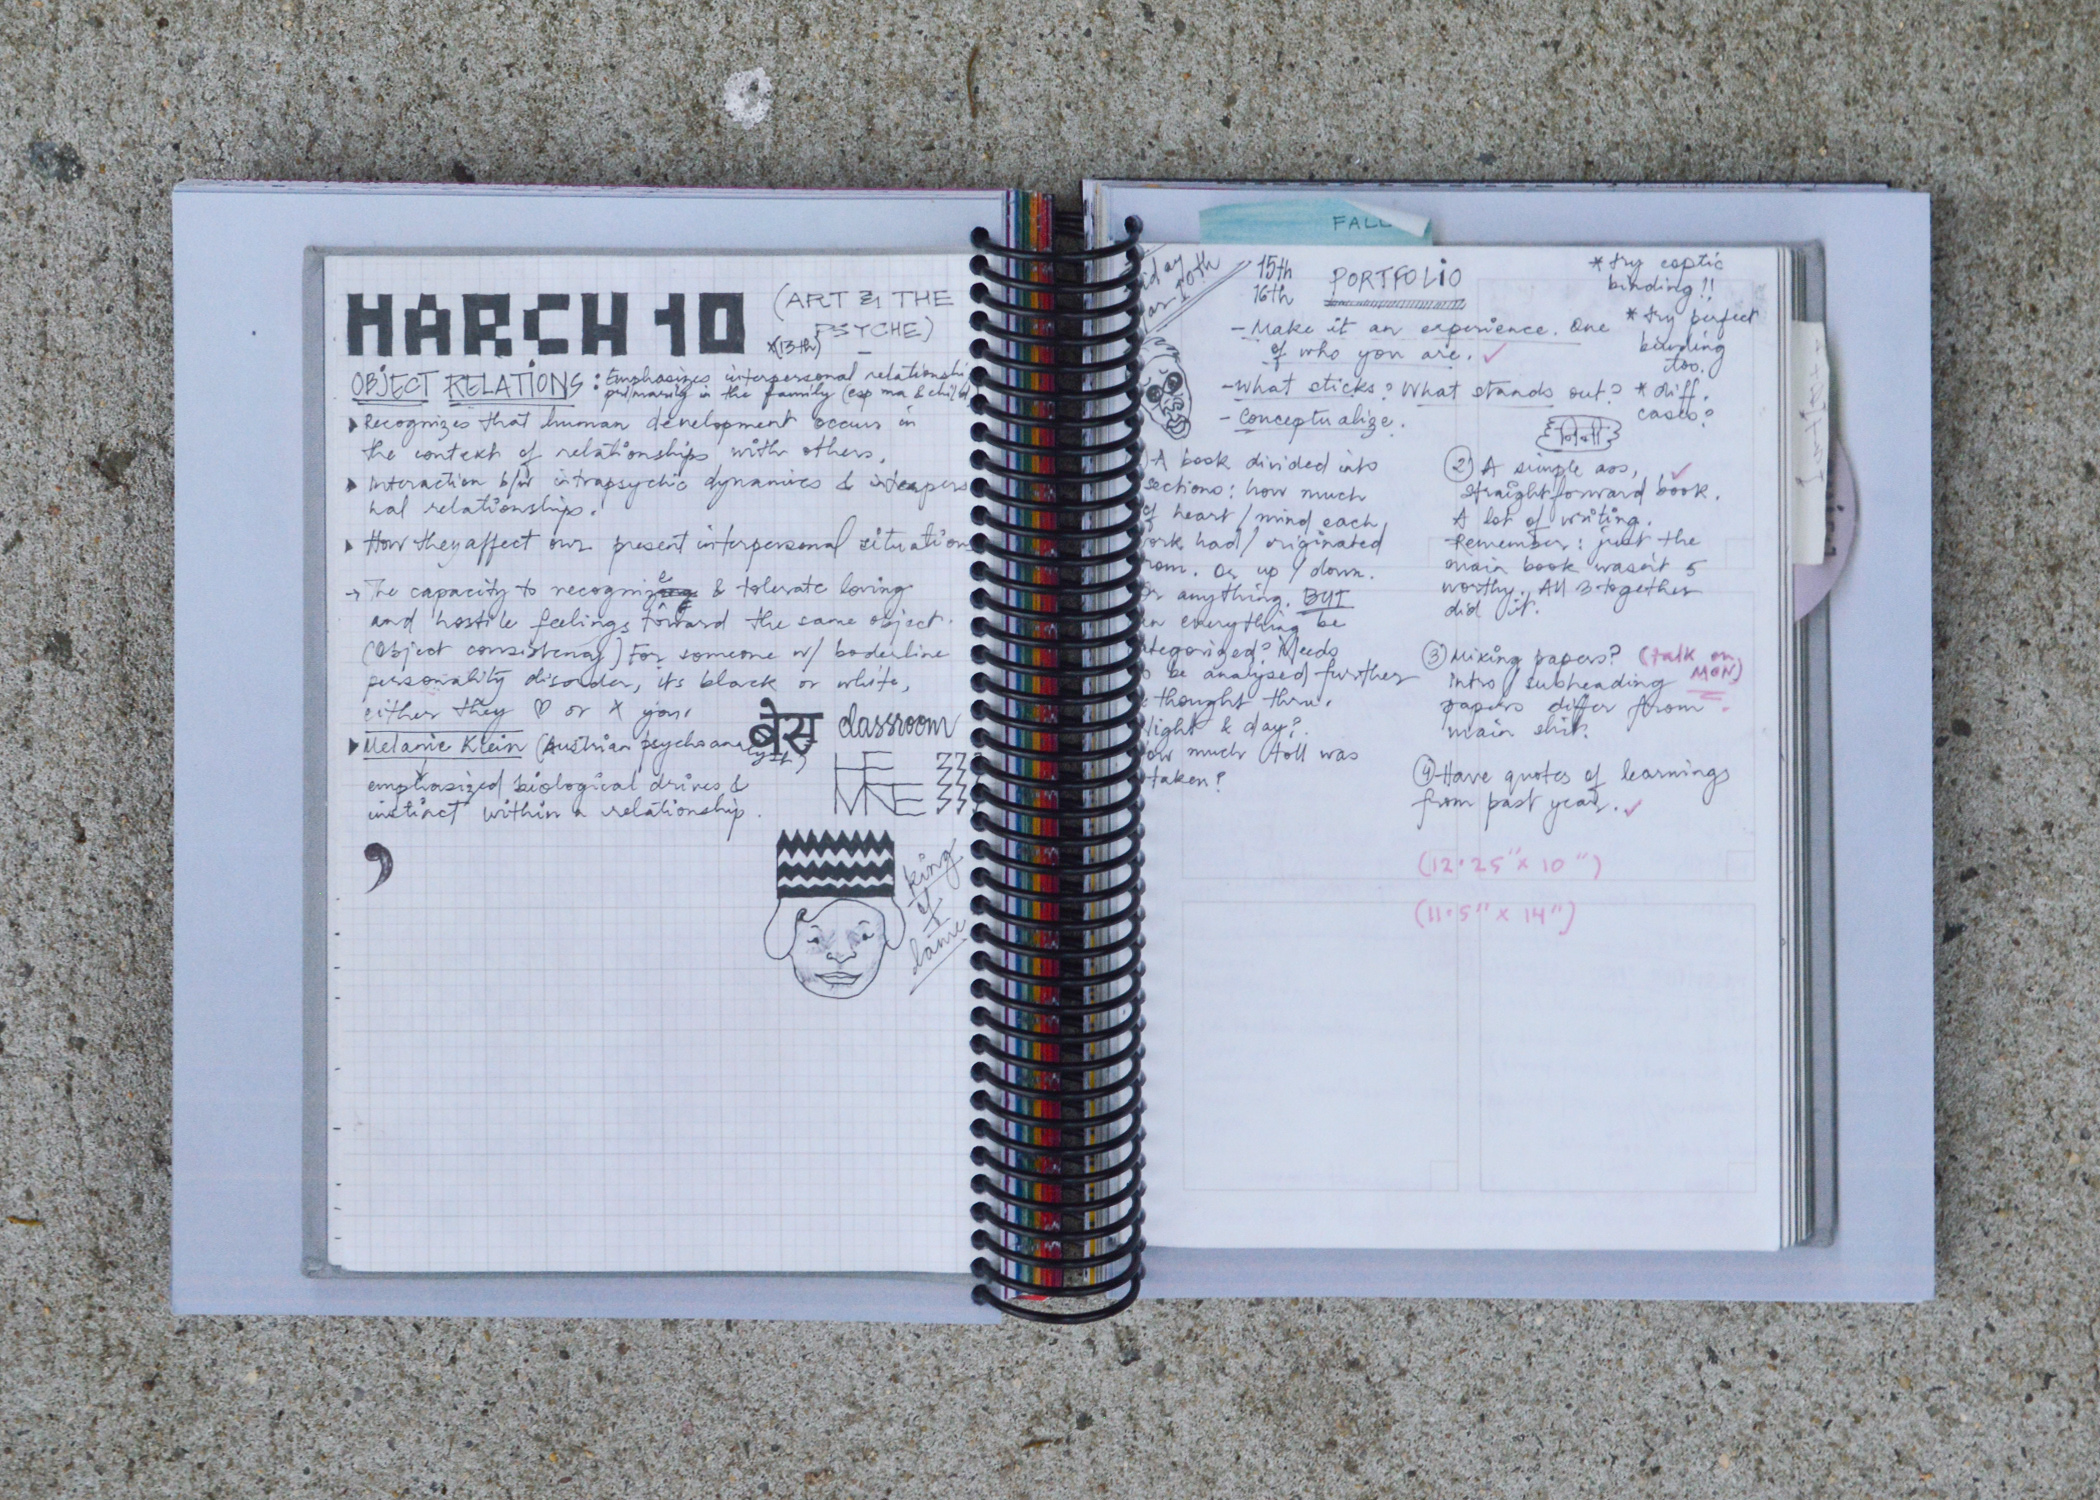 MARCH 10
(ART & THE
PSYCHE)
*(13th)
OBJECT RELATIONS : Emphasizes interpersonal relationshi
primarily in the family (esp ma & child)
Recognizes that human development occurs in
the context of relationships with others.
Interaction b/w intrapsychic dynamics & interpers
nal relationships.
How they affect our present interpersonal situations
→ The capacity to recognize & tolerate loving
and hostile feelings toward the same object.
(Object consistency) For someone w/ borderline
personality disorder, its black or white,
either they ♡ or x you.
Melanie Klein (Austrian psychoanalyst)
emphasized biological drives &
instinct within a relationship.
बेस classroom
,
king
of
lame
FALL
iday
Mar 10th
15th
16th
PORTFOLIO
- Make it an experience. One
of who you are. ✓
- What sticks? What stands out?
- Conceptualize.
* try coptic
binding!!
* try perfect
binding
too.
* diff.
cases?
A book divided into
sections: how much
of heart/mind each
ork had/originated
rom. Or up/down.
Or anything. BUT
an everything be
ategorized? Needs
o be analysed further
thought thru.
Night & day?
ow much toll was
taken?
② A simple ✓
straightforward book.
A lot of writing.
Remember: just the
main book wasn't 5
worthy. All 3 together
did it.
③ Mixing papers? (talk on
MON)
Intro/subheading
papers differ from
main shit.
④ Have quotes of learnings
from past year. ✓
(12.25" x 10")
(11.5" x 14")